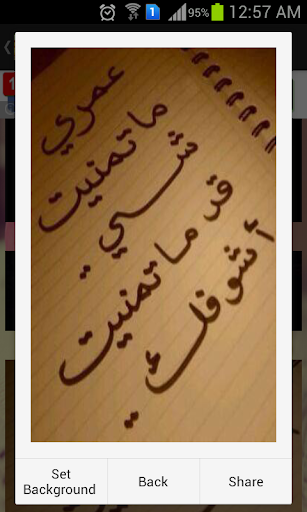 95% 12:57 AM
1
عمري
ما تمنيت
شي
قد ما تمنيت
أشوفك
..
Set
Background
Back
Share